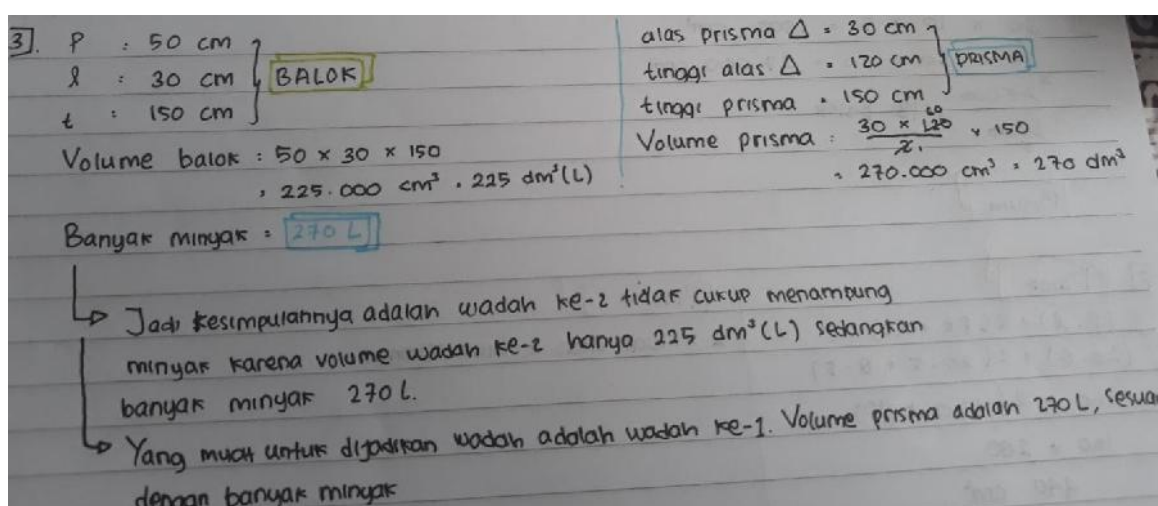 3. P : 50 cm
l : 30 cm
t : 150 cm
BALOK
Volume balok : 50 × 30 × 150
= 225.000 cm³ = 225 dm³ (L)
alas prisma △ = 30 cm
tinggi alas △ = 120 cm
tinggi prisma = 150 cm
PRISMA
Volume prisma : 30 × 120 60 / 2 1 × 150
= 270.000 cm³ = 270 dm³
Banyak minyak = 270 L
Jadi kesimpulannya adalah wadah ke-2 tidak cukup menampung
minyak karena volume wadah ke-2 hanya 225 dm³ (L) sedangkan
banyak minyak 270 L.
Yang muat untuk dijadikan wadah adalah wadah ke-1. Volume prisma adalah 270 L, sesuai
dengan banyak minyak